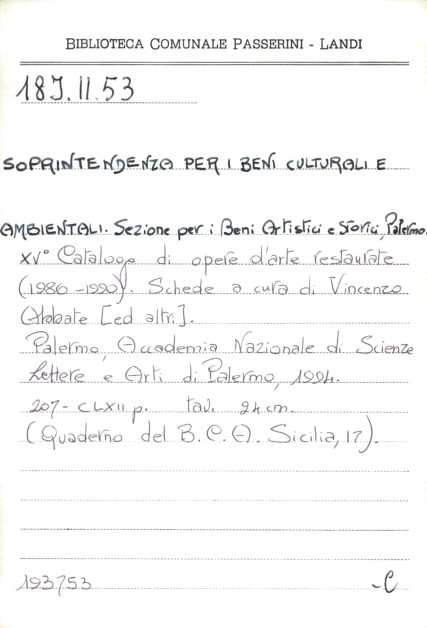 BIBLIOTECA COMUNALE PASSERINI - LANDI
18J.II.53
SOPRINTENDENZA PER I BENI CULTURALI E
AMBIENTALI. Sezione per i Beni Artistici e Storici, Palermo.
XV° Catalogo di opere d'arte restaurate
(1986-1990). Schede a cura di Vincenzo
Abbate [ed altri].
Palermo, Accademia Nazionale di Scienze
Lettere e Arti di Palermo, 1994.
207-CLXII p. tav. 24 cm.
(Quaderno del B.C.A. Sicilia, 17).
193753 -C